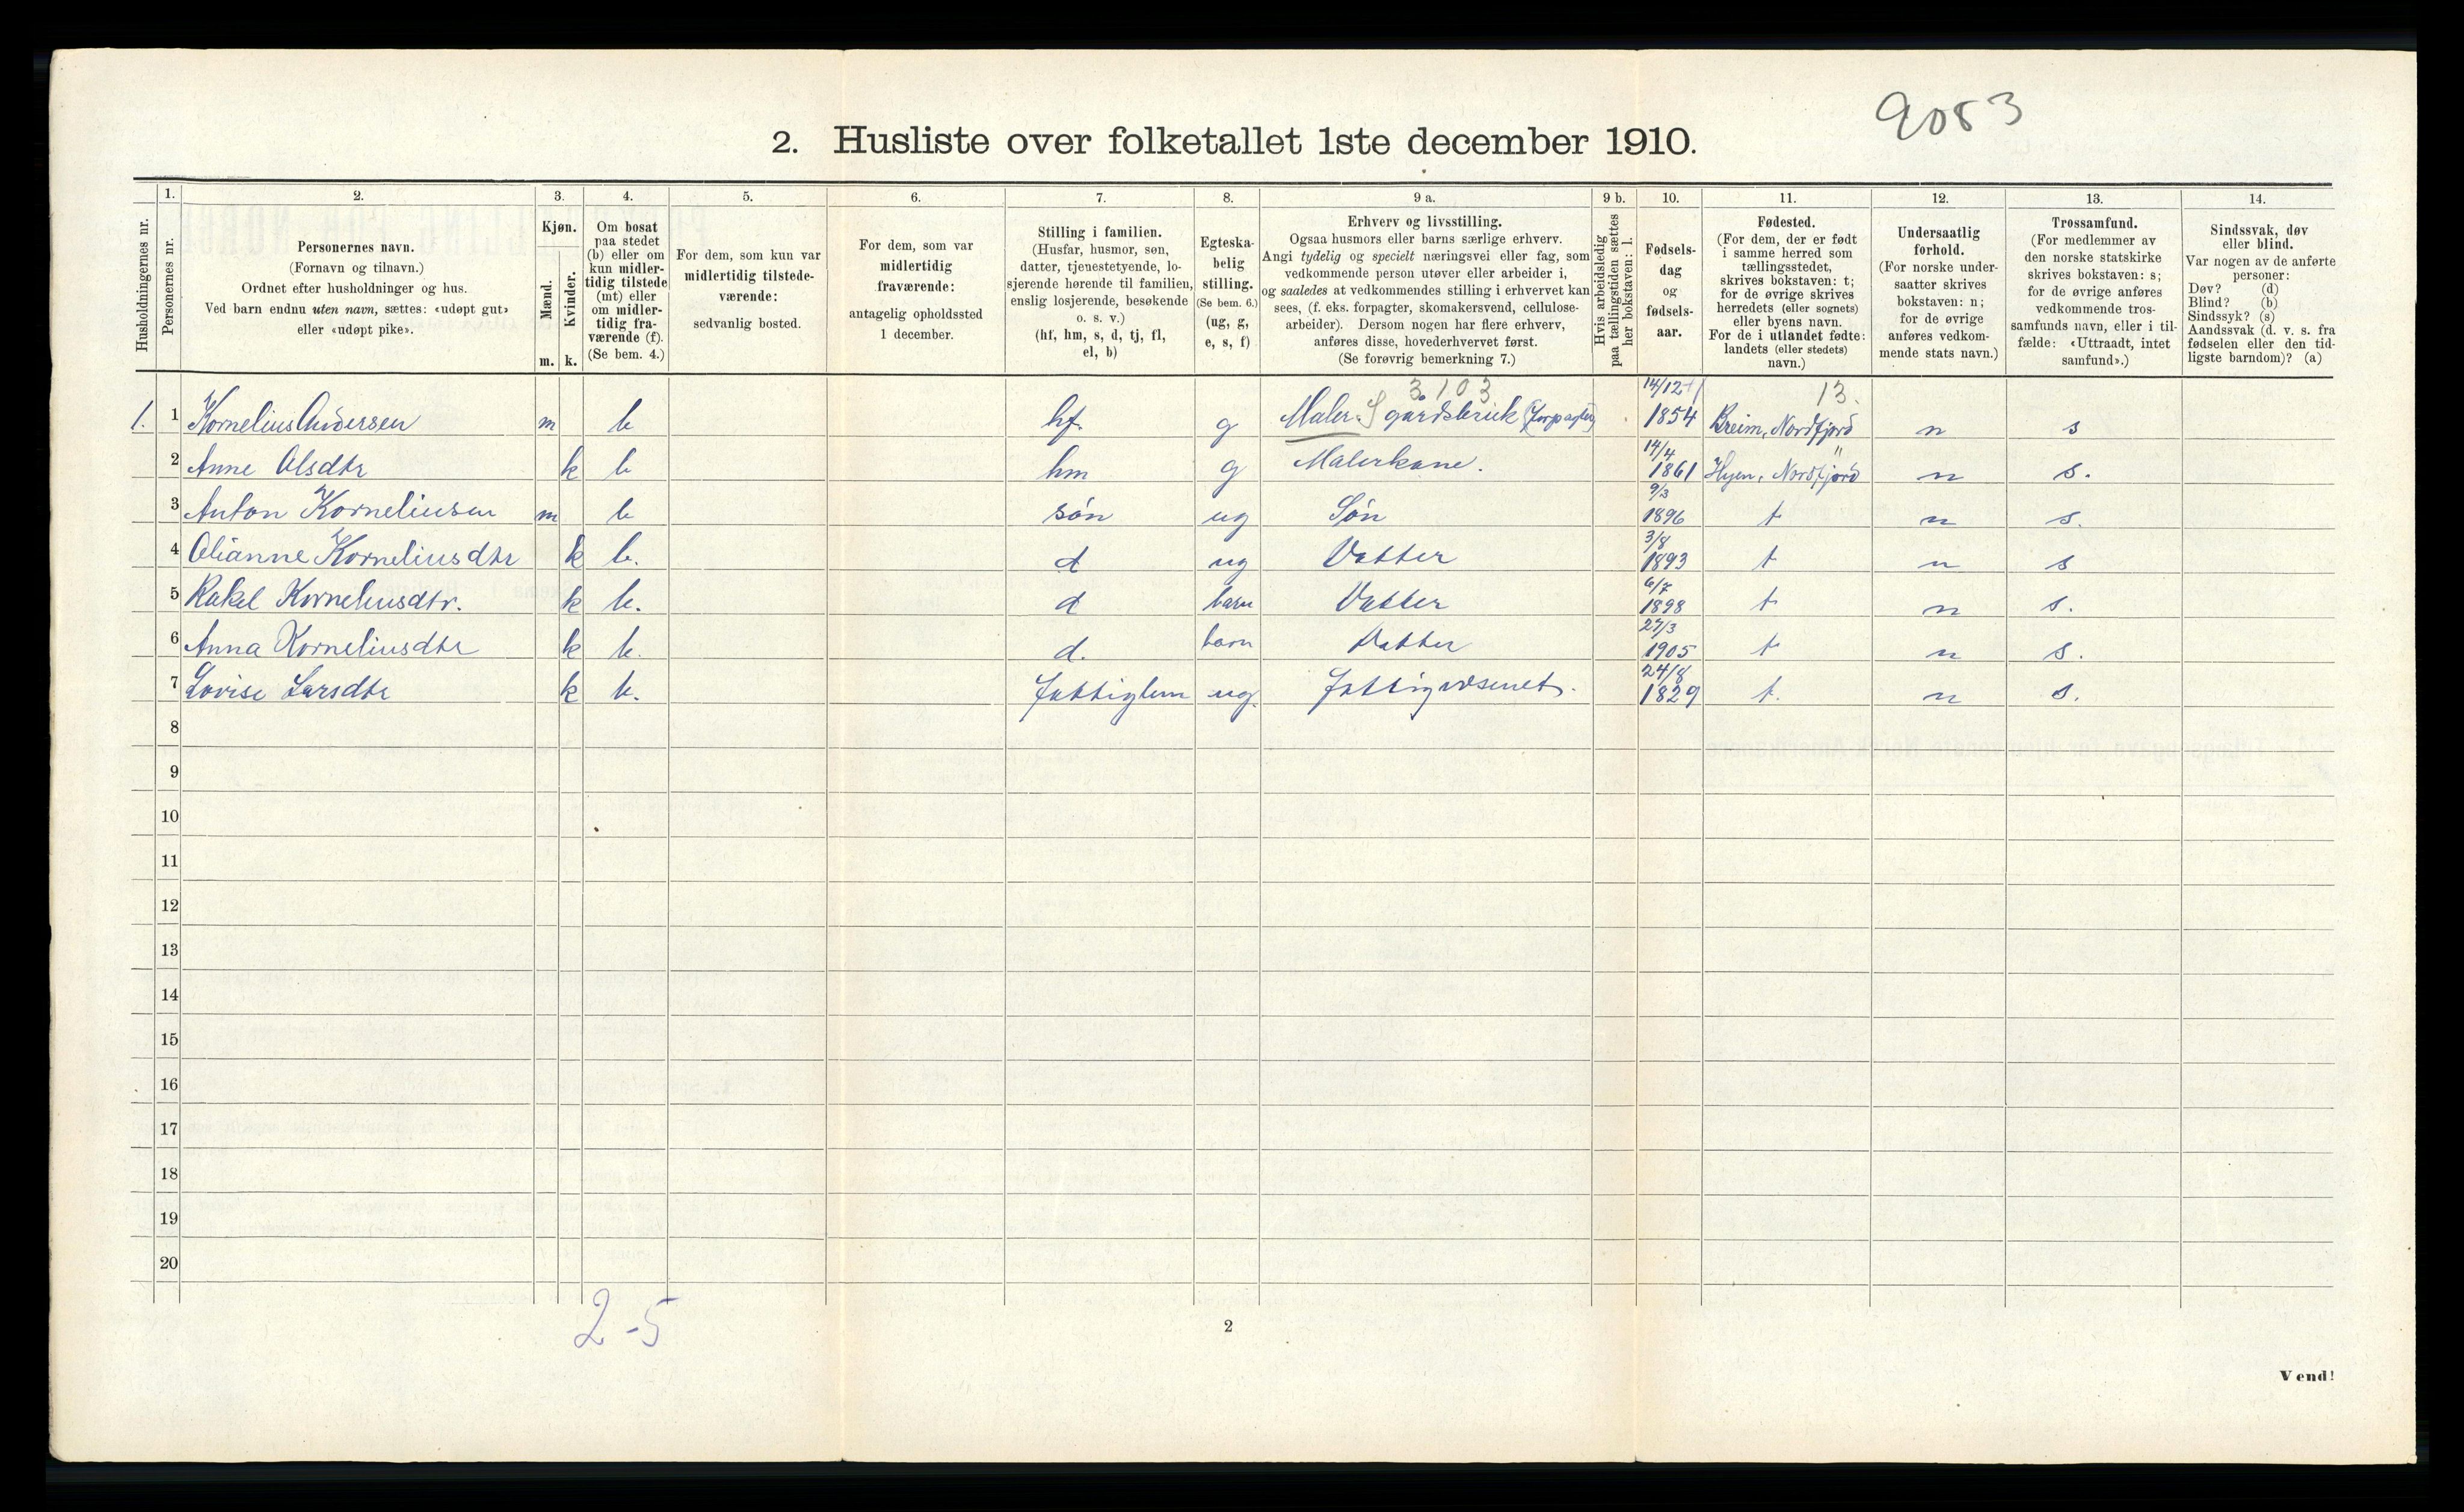 9083
2. Husliste over folketallet 1ste december 1910.
Husholdningernes nr.
1.
Personernes nr.
2.
Personernes navn.
(Fornavn og tilnavn.)
Ordnet efter husholdninger og hus.
Ved barn endnu uten navn, sættes: «udøpt gut»
eller «udøpt pike».
3.
Kjøn.
Mænd.
Kvinder.
m. k.
4.
Om bosat
paa stedet
(b) eller om
kun midler-
tidig tilstede
(mt) eller
om midler-
tidig fra-
værende (f).
(Se bem. 4.)
5.
For dem, som kun var
midlertidig tilstede-
værende:
sedvanlig bosted.
6.
For dem, som var
midlertidig
fraværende:
antagelig opholdssted
1 december.
7.
Stilling i familien.
(Husfar, husmor, søn,
datter, tjenestetyende, lo-
sjerende hørende til familien,
enslig losjerende, besøkende
o. s. v.)
(hf, hm, s, d, tj, fl,
el, b)
8.
Egteska-
belig
stilling.
(Se bem. 6.)
(ug, g,
e, s, f)
9 a.
Erhverv og livsstilling.
Ogsaa husmors eller barns særlige erhverv.
Angi tydelig og specielt næringsvei eller fag, som
vedkommende person utøver eller arbeider i,
og saaledes at vedkommendes stilling i erhvervet kan
sees, (f. eks. forpagter, skomakersvend, cellulose-
arbeider). Dersom nogen har flere erhverv,
anføres disse, hovederhvervet først.
(Se forøvrig bemerkning 7.)
9 b.
Hvis arbeidsledig
paa tællingstiden sættes
her bokstaven: l.
10.
Fødsels-
dag
og
fødsels-
aar.
11.
Fødested.
(For dem, der er født
i samme herred som
tællingsstedet,
skrives bokstaven: t;
for de øvrige skrives
herredets (eller sognets)
eller byens navn.
For de i utlandet fødte:
landets (eller stedets)
navn.)
12.
Undersaatlig
forhold.
(For norske under-
saatter skrives
bokstaven: n;
for de øvrige
anføres vedkom-
mende stats navn.)
13.
Trossamfund.
(For medlemmer av
den norske statskirke
skrives bokstaven: s;
for de øvrige anføres
vedkommende tros-
samfunds navn, eller i til-
fælde: «Uttraadt, intet
samfund».)
14.
Sindssvak, døv
eller blind.
Var nogen av de anførte
personer:
Døv? (d)
Blind? (b)
Sindssyk? (s)
Aandssvak (d. v. s. fra
fødselen eller den tid-
ligste barndom)? (a)
3103 14/12 13.
1. 1 Kornelius Andersen m b hf. g Maler. S gårdsbruk (forpagter) 1854 Breim, Nordfjord n s
14/4 "
2 Anne Olsdtr k b hm g Malerkone. 1861 Hyen, Nordfjord n s.
9/3
3 Anton Korneliusen m b søn ug Søn 1896 t n s.
3/8
4 Olianne Korneliusdtr k b. d ug Datter 1893 t n s
6/7
5 Rakel Korneliusdtr. k b. d barn Datter 1898 t n s.
27/3
6 Anna Korneliusdtr k b. d. barn Datter 1905 t n s.
24/8
7 Lovise Larsdtr k b. Fattiglem ug. Fattigvæsenet. 1829 t. n s.
8
9
10
11
12
13
14
15
16
17
18
19
20
2-5
2
Vend!